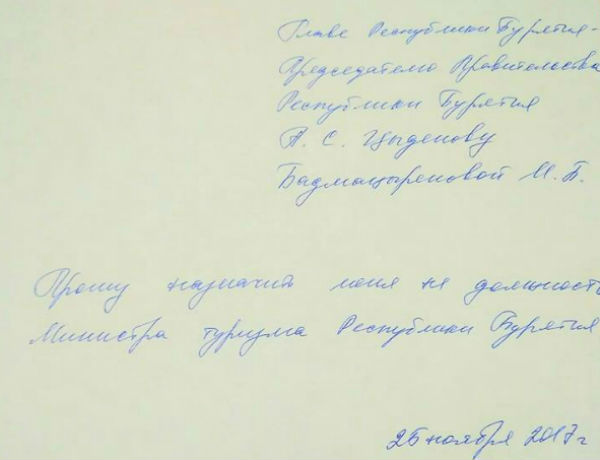 Главе Республики Бурятия-
Председателю Правительства
Республики Бурятия
А. С. Цыденову
Бадмацыреновой М. Б.
Прошу назначить меня на должность
Министра туризма Республики Бурятия
25 ноября 2017 г